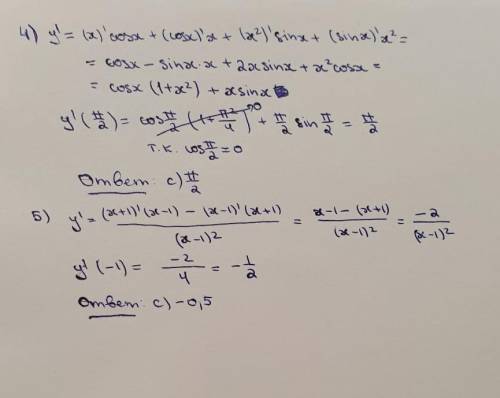 4) y' = (x)'cosx + (cosx)'x + (x²)'sinx + (sinx)'x² =
= cosx - sinx·x + 2xsinx + x²cosx =
= cosx (1+x²) + xsinx
y'(π/2) = cos π/2 (1+π²/4)⁰ + π/2 sin π/2 = π/2
т.к. cos π/2 = 0
Ответ: c) π/2
5) y' = ((x+1)'(x-1) - (x-1)'(x+1))/(x-1)² = (x-1-(x+1))/(x-1)² = -2/(x-1)²
y'(-1) = -2/4 = -1/2
Ответ: c) -0,5